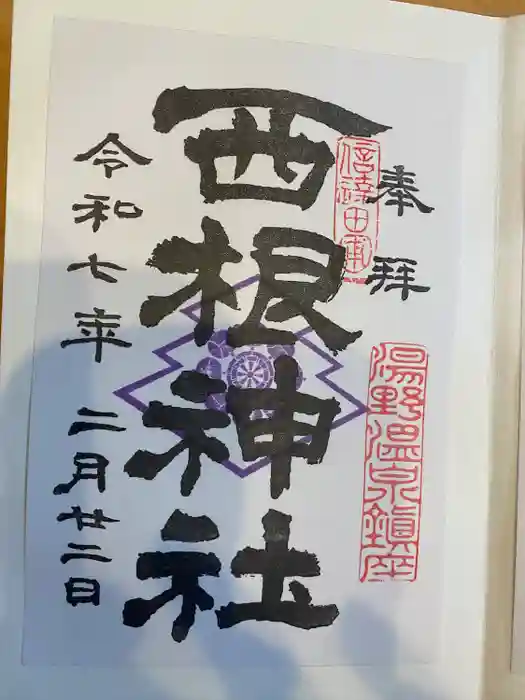 奉拝
湯野温泉鎮座
西根神社
令和七年 二月廿二日